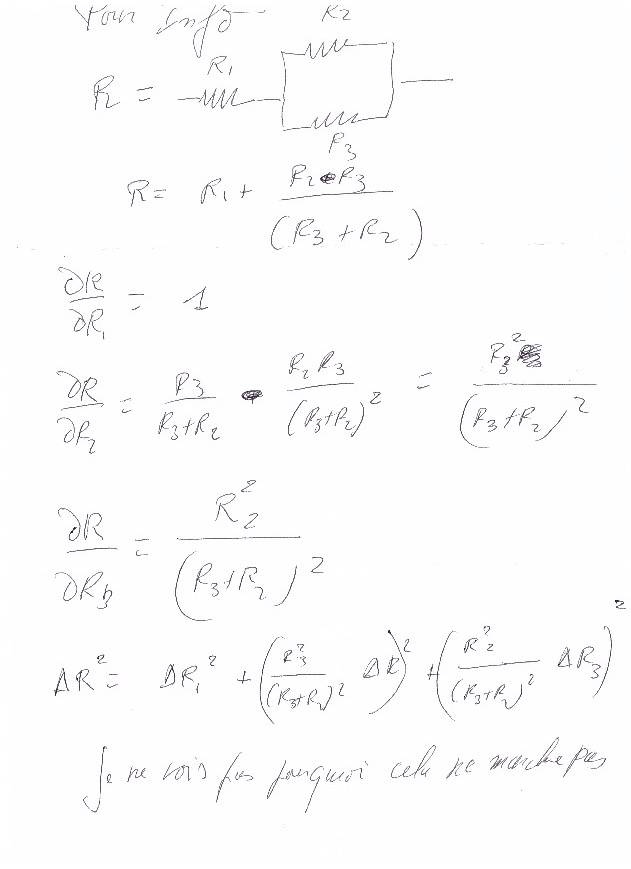 Pour Info
R2
R1
R =
R3
R = R1 + R2 • R3 / (R3 + R2)
∂R/∂R1 = 1
∂R/∂R2 = R3/(R3+R2) - R2 R3/(R3+R2)² = R3²/(R3+R2)²
∂R/∂R3 = R2²/(R3+R2)²
ΔR² = ΔR1² + (R3²/(R3+R2)² ΔR)² + (R2²/(R3+R2)² ΔR3)²
Je ne vois pas pourquoi cela ne marche pas